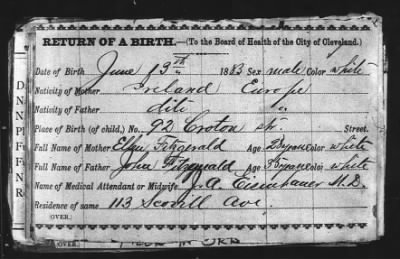 RETURN OF A BIRTH.—(To the Board of Health of the City of Cleveland.)
Date of Birth June 13th 1883 Sex male Color white
Nativity of Mother Ireland Europe
Nativity of Father dito "
Place of Birth (of child,) No. 92 Croton str. Street.
Full Name of Mother Ellen Fitzgerald Age Color white
Full Name of Father John Fitzgerald Age 35 years Color white
Name of Medical Attendant or Midwife J. A. Eisenhauer M.D.
Residence of same 113 Scovill Ave.
(OVER.)
(OVER.)